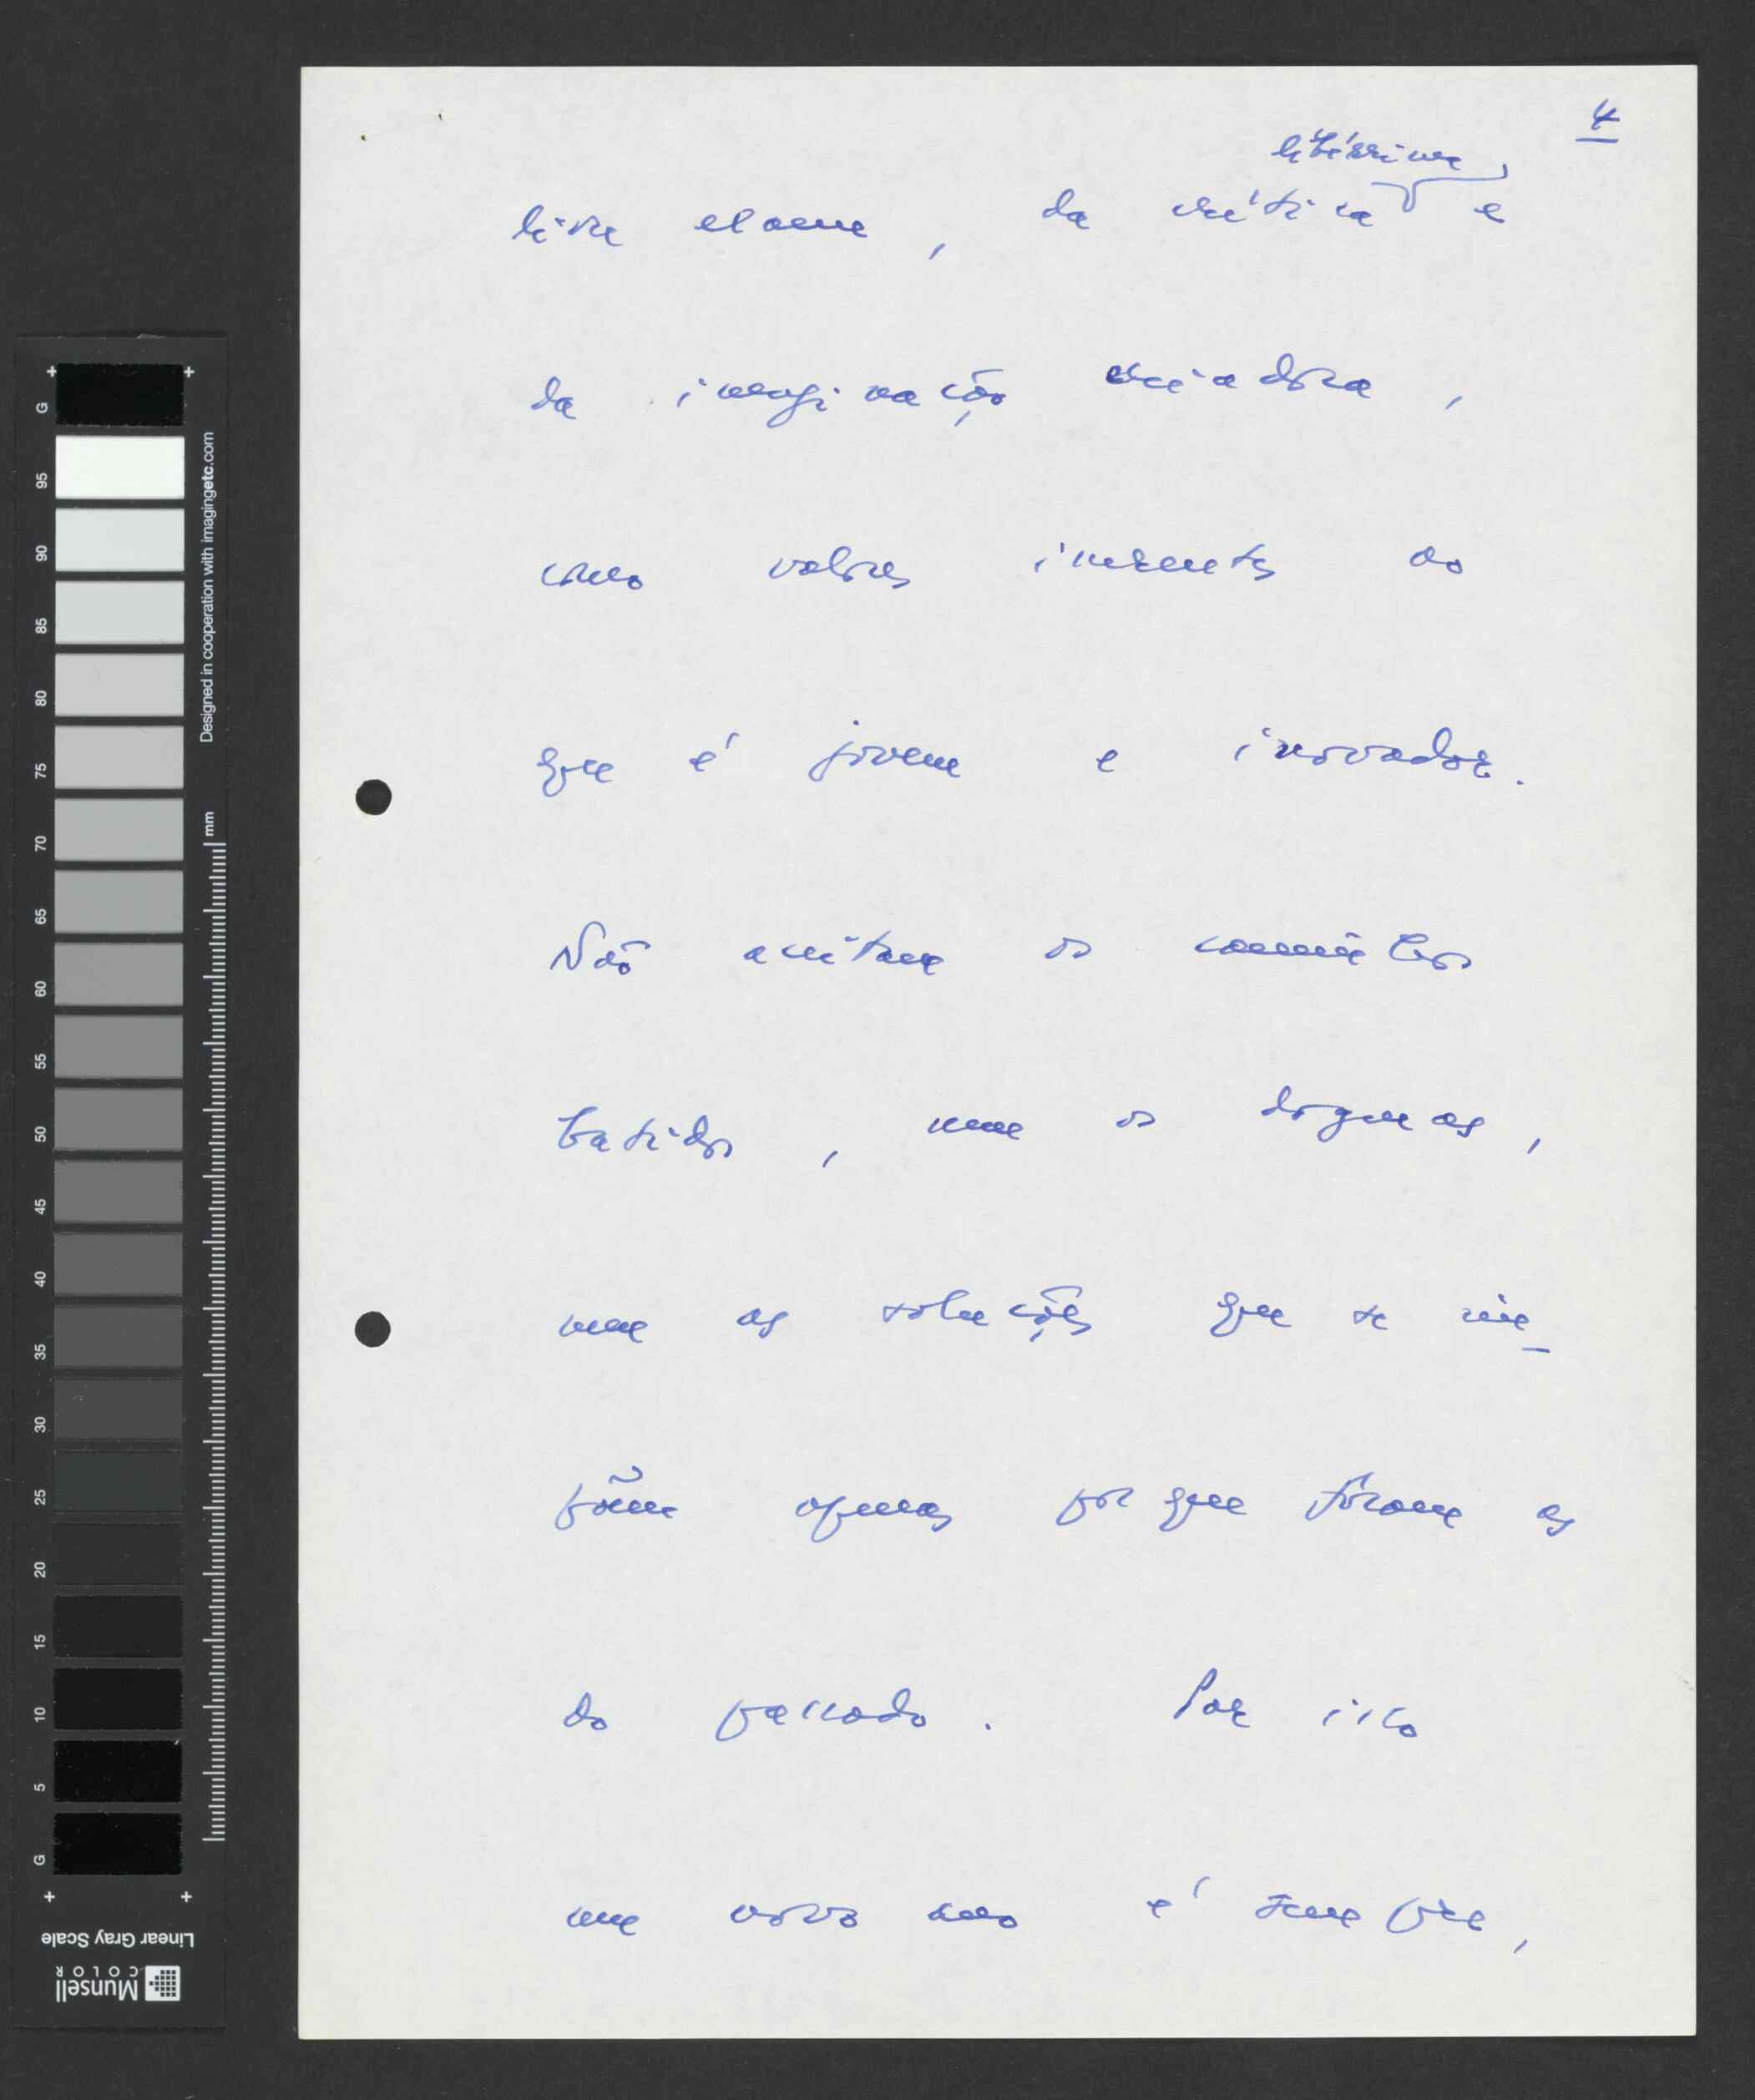 4
libérrima,
livre exame, da crítica e
da imaginação criadora,
como valores inerentes ao
que é jovem e inovador.
Não aceitam os caminhos
batidos, nem os dogmas,
nem as soluções que se im-
põem apenas porque foram as
do passado. Por isso
um novo ano é sempre,
G
95
90
85
80
75
70
65
60
55
50
45
40
35
30
25
20
15
10
5
G
Designed in cooperation with imagingetc.com
mm
Linear Gray Scale
Munsell
COLOR